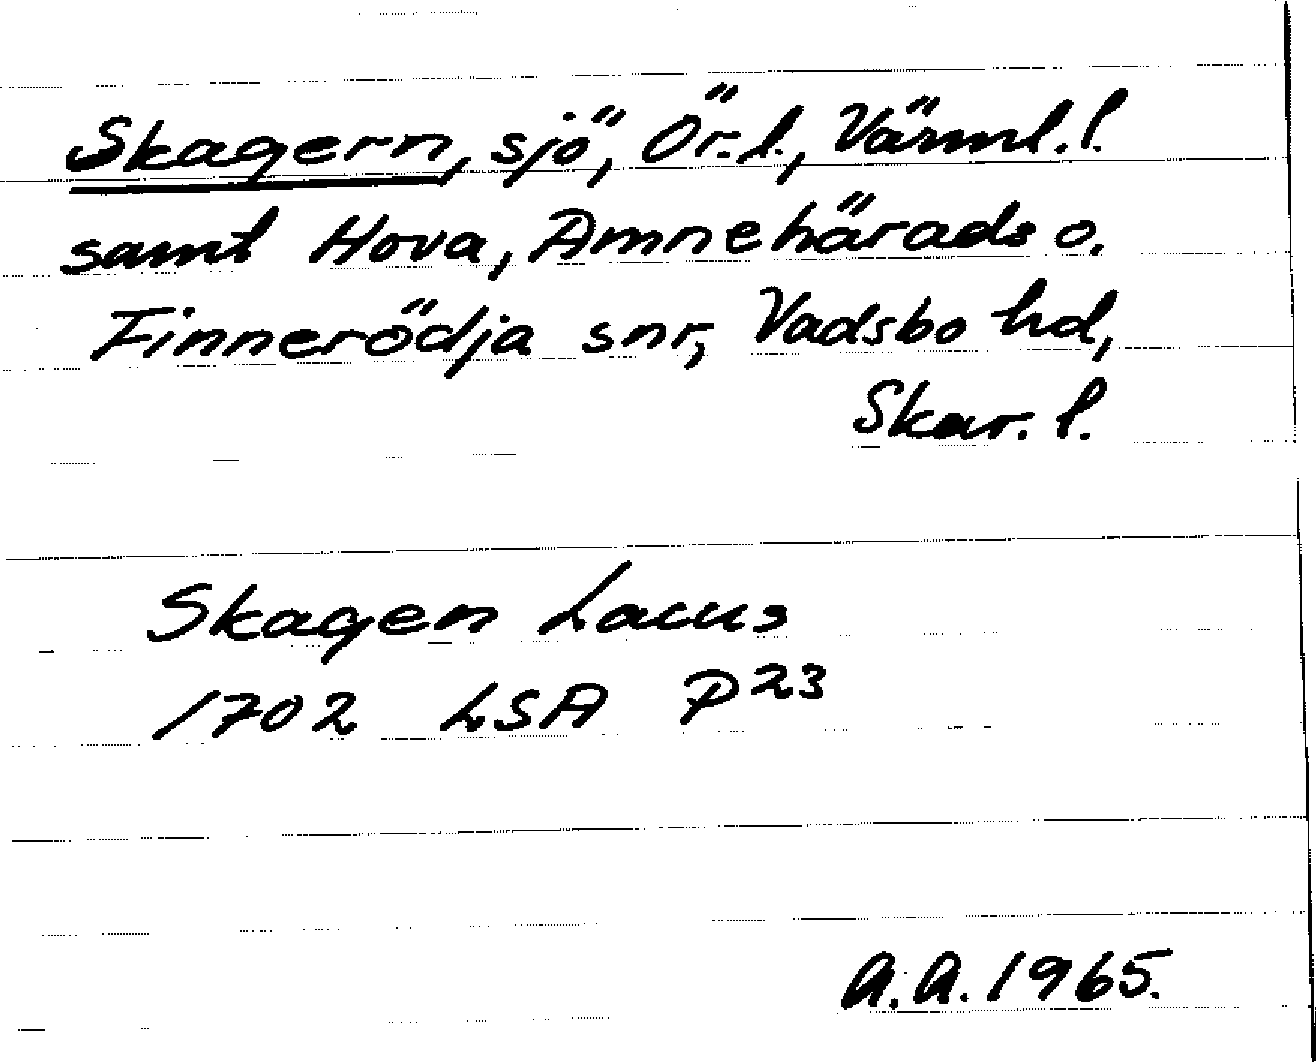 Skagern, sjö, Ör. l., Värml. l.
samt Hova, Amnehärads o.
Finnerödja snr, Vadsbo hd,
Skar. l.
Skagen Lacus
1702 LSA P 23
A.A. 1965.